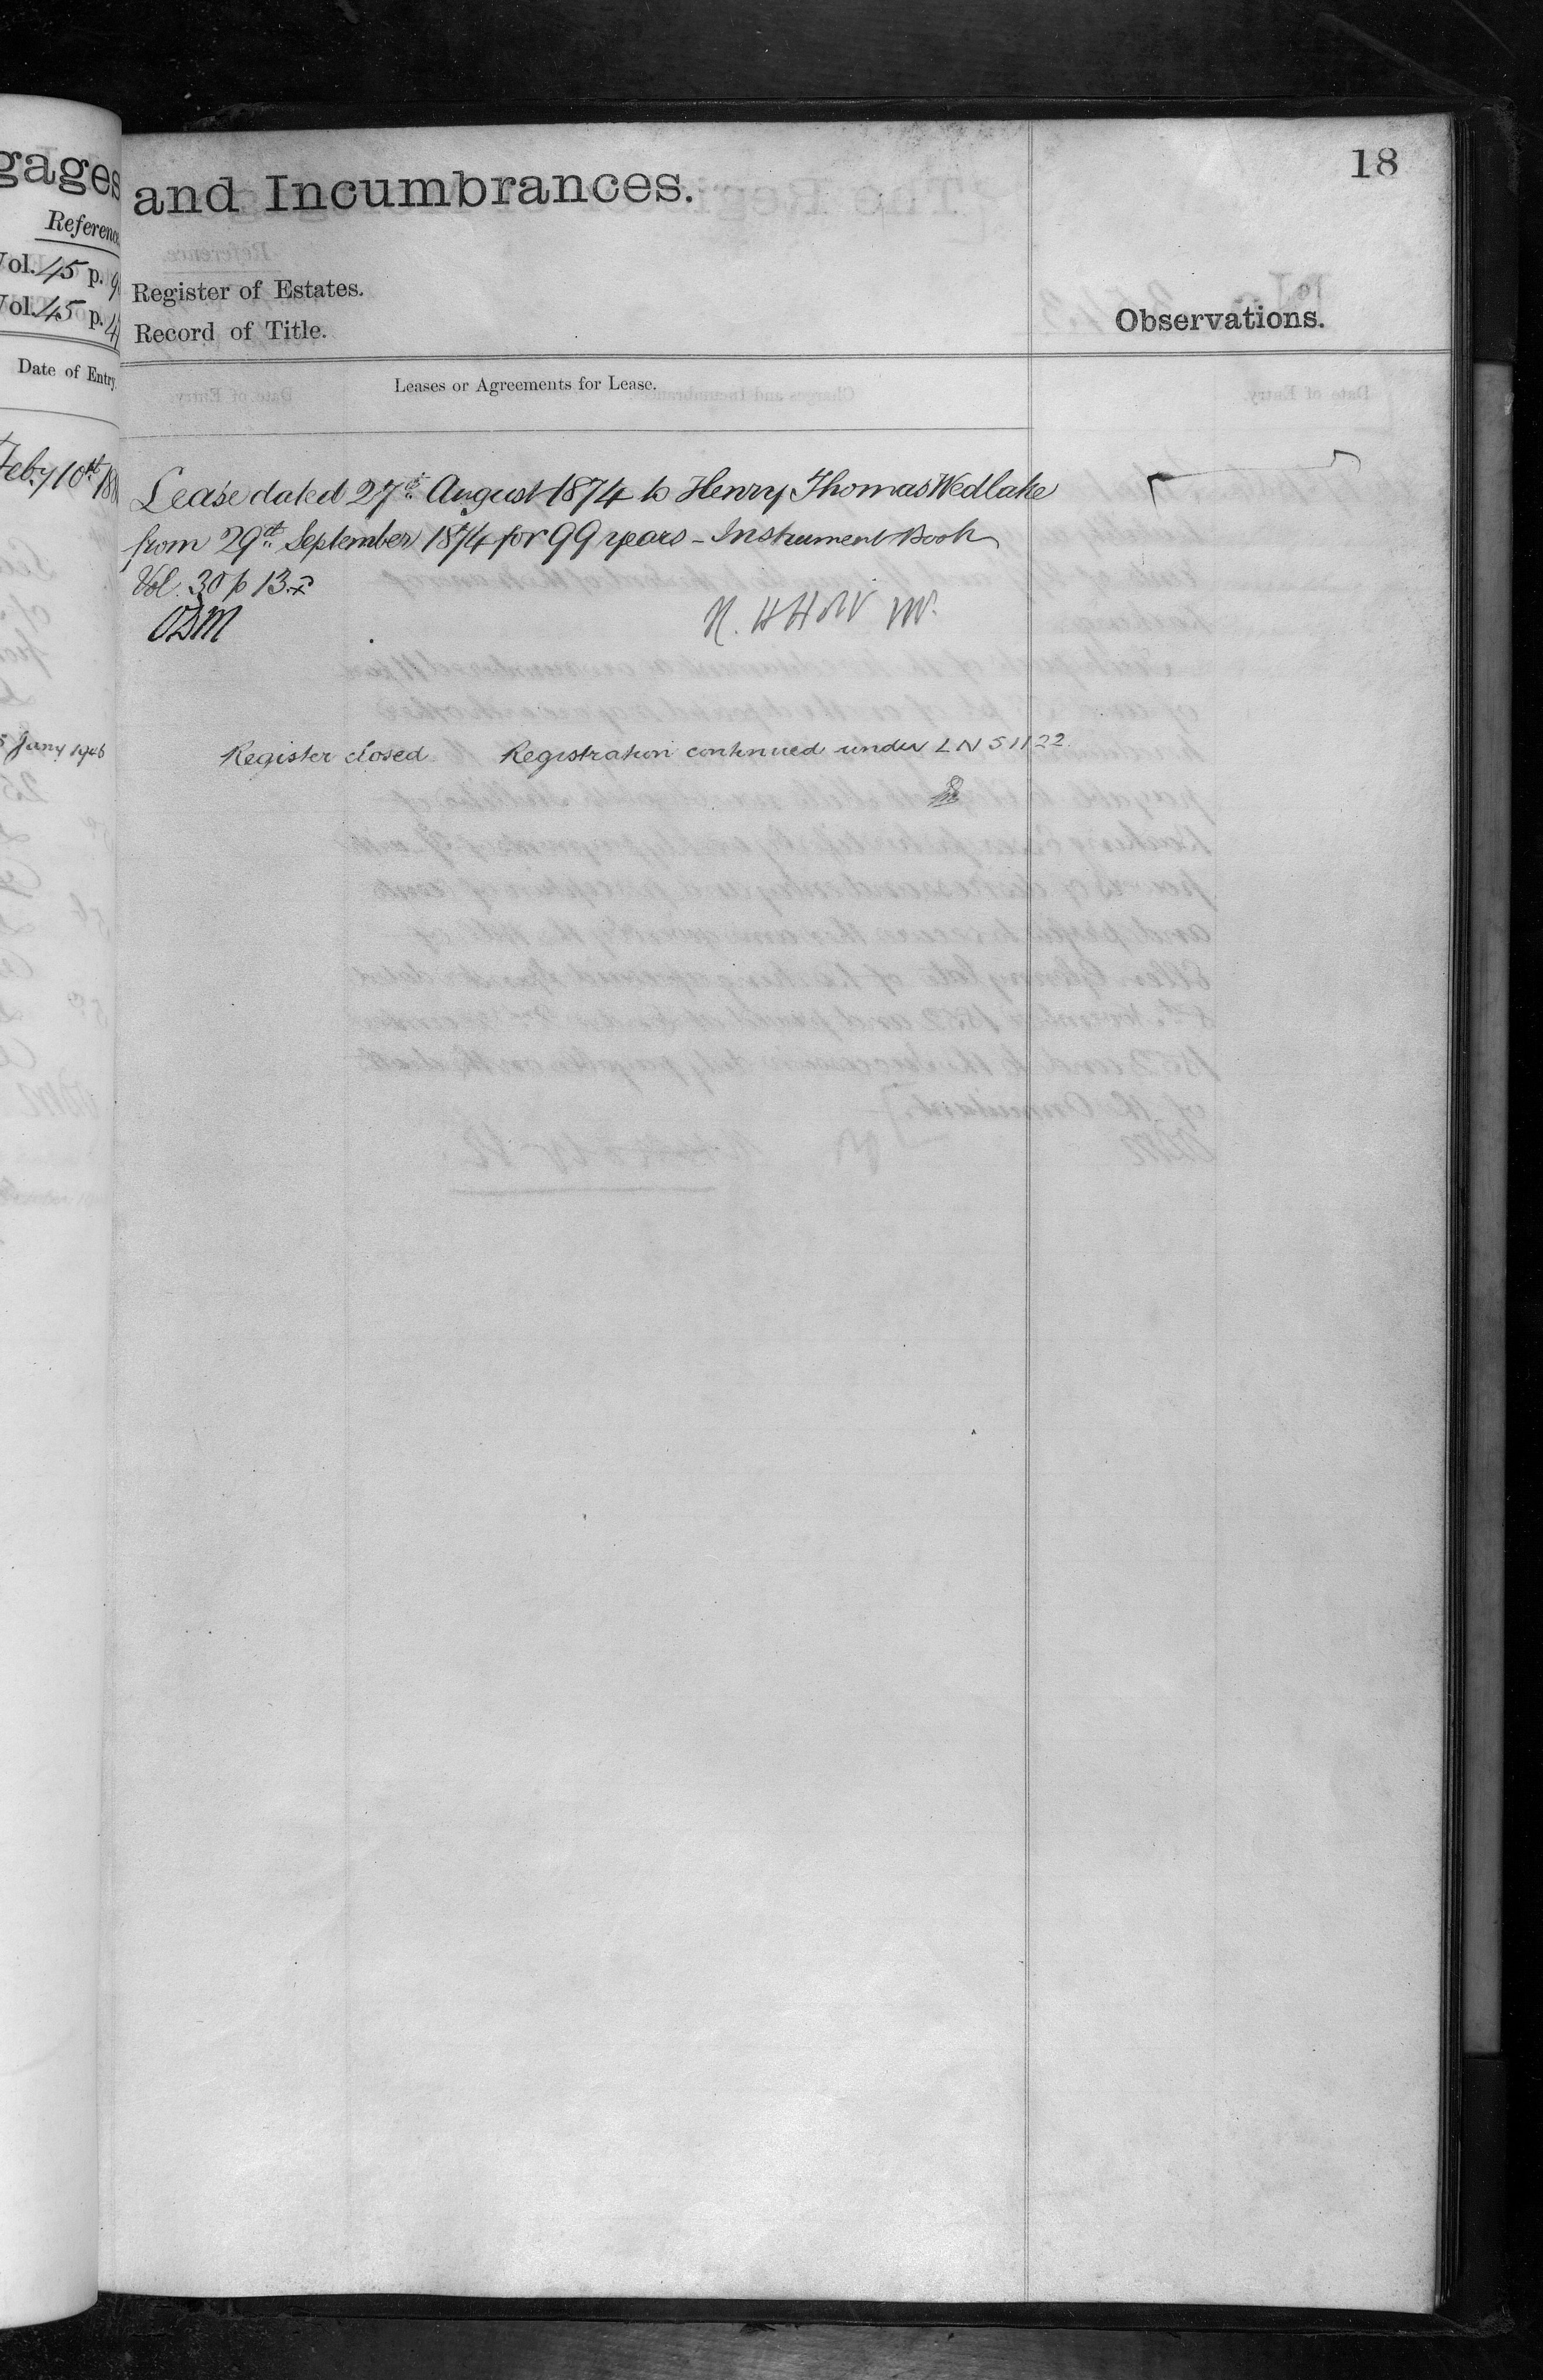 gages
Reference
Vol. 45 p.
Vol. 45 p. 4
Date of Entry.
Feby 10th 188
Jany 1946
18
and Incumbrances.
Register of Estates.
Record of Title.
Observations.
Leases or Agreements for Lease.
Lease dated 27th August 1874 to Henry Thomas Wedlake
from 29th September 1874 for 99 years - Instrument Book
Vol. 30 p 13
Register closed. Registration continued under LN 51122